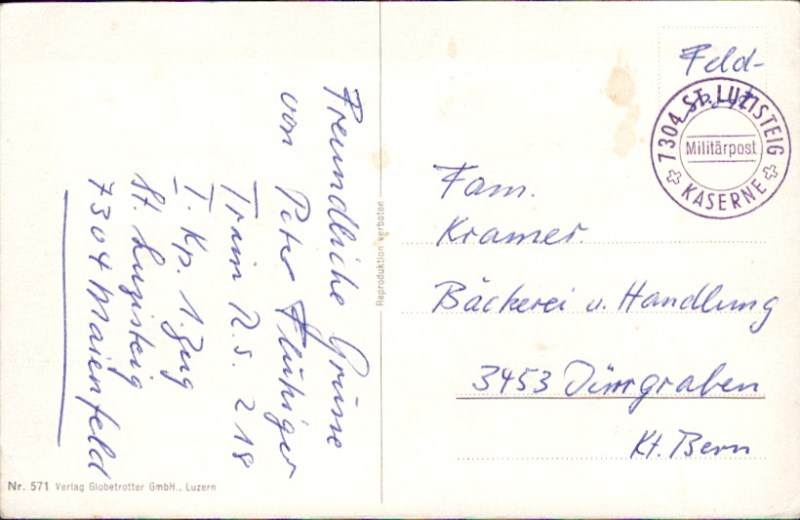 Freundliche Grüsse
von Peter Flühiger
Train R.S. 218
I. Kp. 1. Zug
St. Luzisteig
7304 Maienfeld
Nr. 571 Verlag Globetrotter GmbH., Luzern
Reproduktion verboten
Feld-
7304 ST. LUZISTEIG
Militärpost
KASERNE
Fam.
Kramer.
Bäckerei u. Handlung
3453 Dürrgraben
Kt. Bern